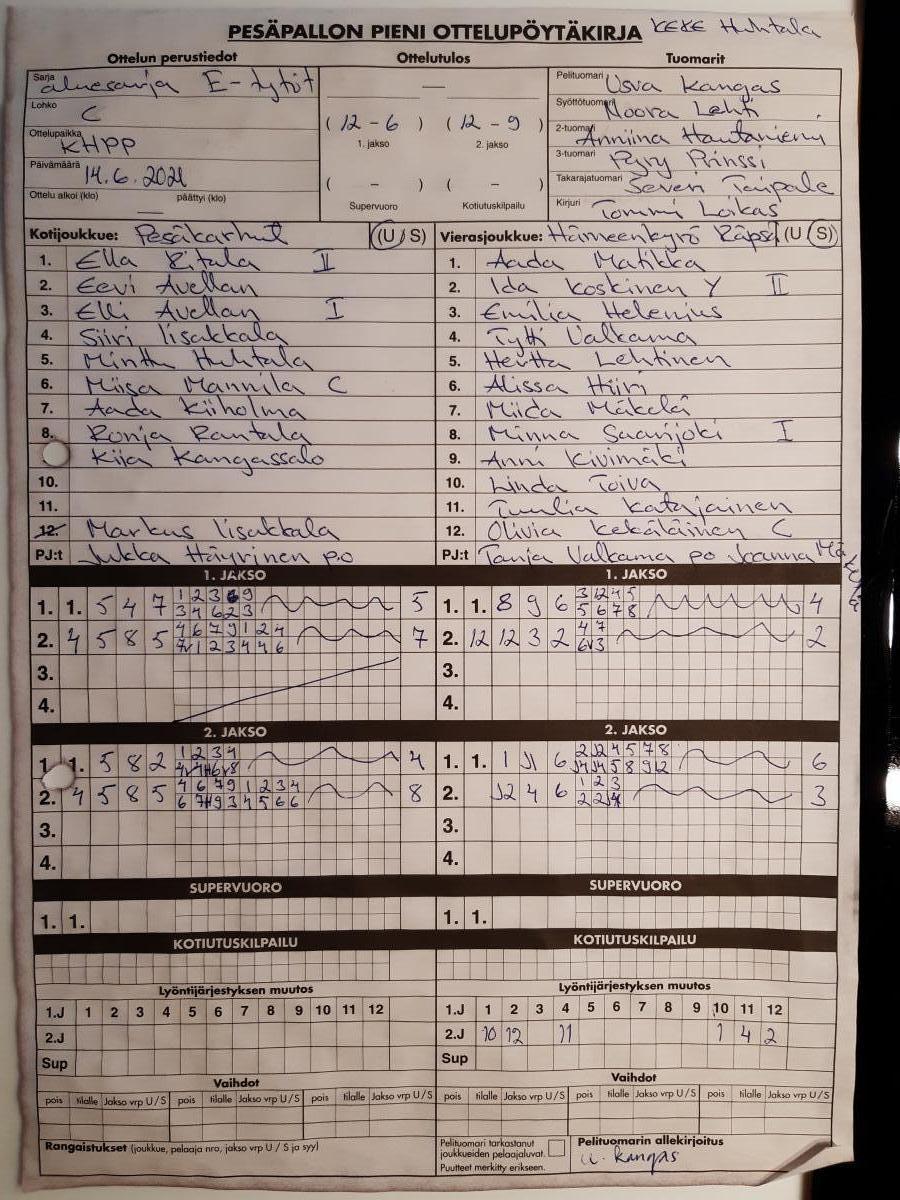 PESÄPALLON PIENI OTTELUPÖYTÄKIRJA KEKE Huhtala
Ottelun perustiedot Ottelutulos Tuomarit
Sarja aluesarja E-tytöt
Lohko C
Ottelupaikka KHPP
Päivämäärä 14.6.2021
Ottelu alkoi (klo) päättyi (klo)
—
(12 - 6) (12 - 9)
1. jakso 2. jakso
( - ) ( - )
Supervuoro Kotiutuskilpailu
Pelituomari Usva Kangas
Syöttötuomari Noora Lehti
2-tuomari Anniina Hautaniemi
3-tuomari Pyry Prinssi
Takarajatuomari Severi Taipale
Kirjuri Tommi Loikas
Kotijoukkue: Pesäkarhut (U/S) Vierasjoukkue: Hämeenkyrö Räpsä (U/S)
1. Ella Ritala II 1. Aada Matikka
2. Eevi Avellan 2. Ida Koskinen Y II
3. Elli Avellan I 3. Emilia Helenius
4. Siiri Iisakkala 4. Tytti Valkama
5. Minttu Huhtala 5. Hertta Lehtinen
6. Miisa Mannila C 6. Alissa Hiiri
7. Aada Kiiholma 7. Miida Mäkelä
8. Ronja Rantala 8. Minna Saarijoki I
Kiia Kangassalo 9. Anni Kivimäki
10. 10. Linda Toiva
11. 11. Tuulia Katajainen
12. Markus Iisakkala 12. Olivia Kekäläinen C
PJ:t Jukka Häyrinen p.o PJ:t Tanja Valkama po Joanna
1. JAKSO 1. JAKSO
1. 1. 5 4 7 5 1. 1. 8 9 6 3 12 4 5 4
5 6 7 8
2. 4 5 8 5 4 6 7 9 1 2 4 7 2. 12 12 3 2 4 7 2
3. 3.
4. 4.
2. JAKSO 2. JAKSO
1. 1. 5 8 2 1 2 3 4 4 1. 1. 1 11 6 2 12 4 5 7 8 6
2. 4 5 8 5 4 6 7 9 1 2 3 4 8 2. 12 4 6 1 2 3 3
3. 3.
4. 4.
SUPERVUORO SUPERVUORO
1. 1. 1. 1.
KOTIUTUSKILPAILU KOTIUTUSKILPAILU
Lyöntijärjestyksen muutos Lyöntijärjestyksen muutos
1.J 1 2 3 4 5 6 7 8 9 10 11 12 1.J 1 2 3 4 5 6 7 8 9 10 11 12
2.J 2.J 10 12 11 1 4 2
Sup Sup
Vaihdot Vaihdot
pois tilalle Jakso vrp U/S pois tilalle Jakso vrp U/S pois tilalle Jakso vrp U/S pois tilalle Jakso vrp U/S pois tilalle Jakso vrp U/S pois tilalle Jakso vrp U/S
Rangaistukset (joukkue, pelaaja nro, jakso vrp U / S ja syy)
Pelituomari tarkastanut
joukkueiden pelaajaluvat.
Puutteet merkitty erikseen.
Pelituomarin allekirjoitus
U. Kangas